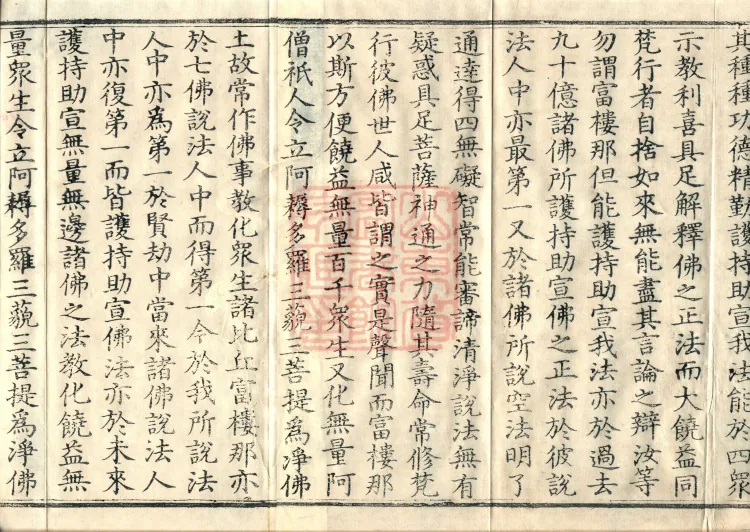 其種種功德精勤護持助宣我法能於四眾
示教利喜具足解釋佛之正法而大饒益同
梵行者自捨如來無能盡其言論之辯汝等
勿謂富樓那但能護持助宣我法亦於過去
九十億諸佛所護持助宣佛之正法於彼說
法人中亦最第一又於諸佛所說空法明了
通達得四無礙智常能審諦清淨說法無有
疑惑具足菩薩神通之力隨其壽命常修梵
行彼佛世人咸皆謂之實是聲聞而富樓那
以斯方便饒益無量百千眾生又化無量阿
僧祇人令立阿耨多羅三藐三菩提為淨佛
土故常作佛事教化眾生諸比丘富樓那亦
於七佛說法人中而得第一今於我所說法
人中亦為第一於賢劫中當來諸佛說法人
中亦復第一而皆護持助宣佛法亦於未來
護持助宣無量無邊諸佛之法教化饒益無
量眾生令立阿耨多羅三藐三菩提為淨佛